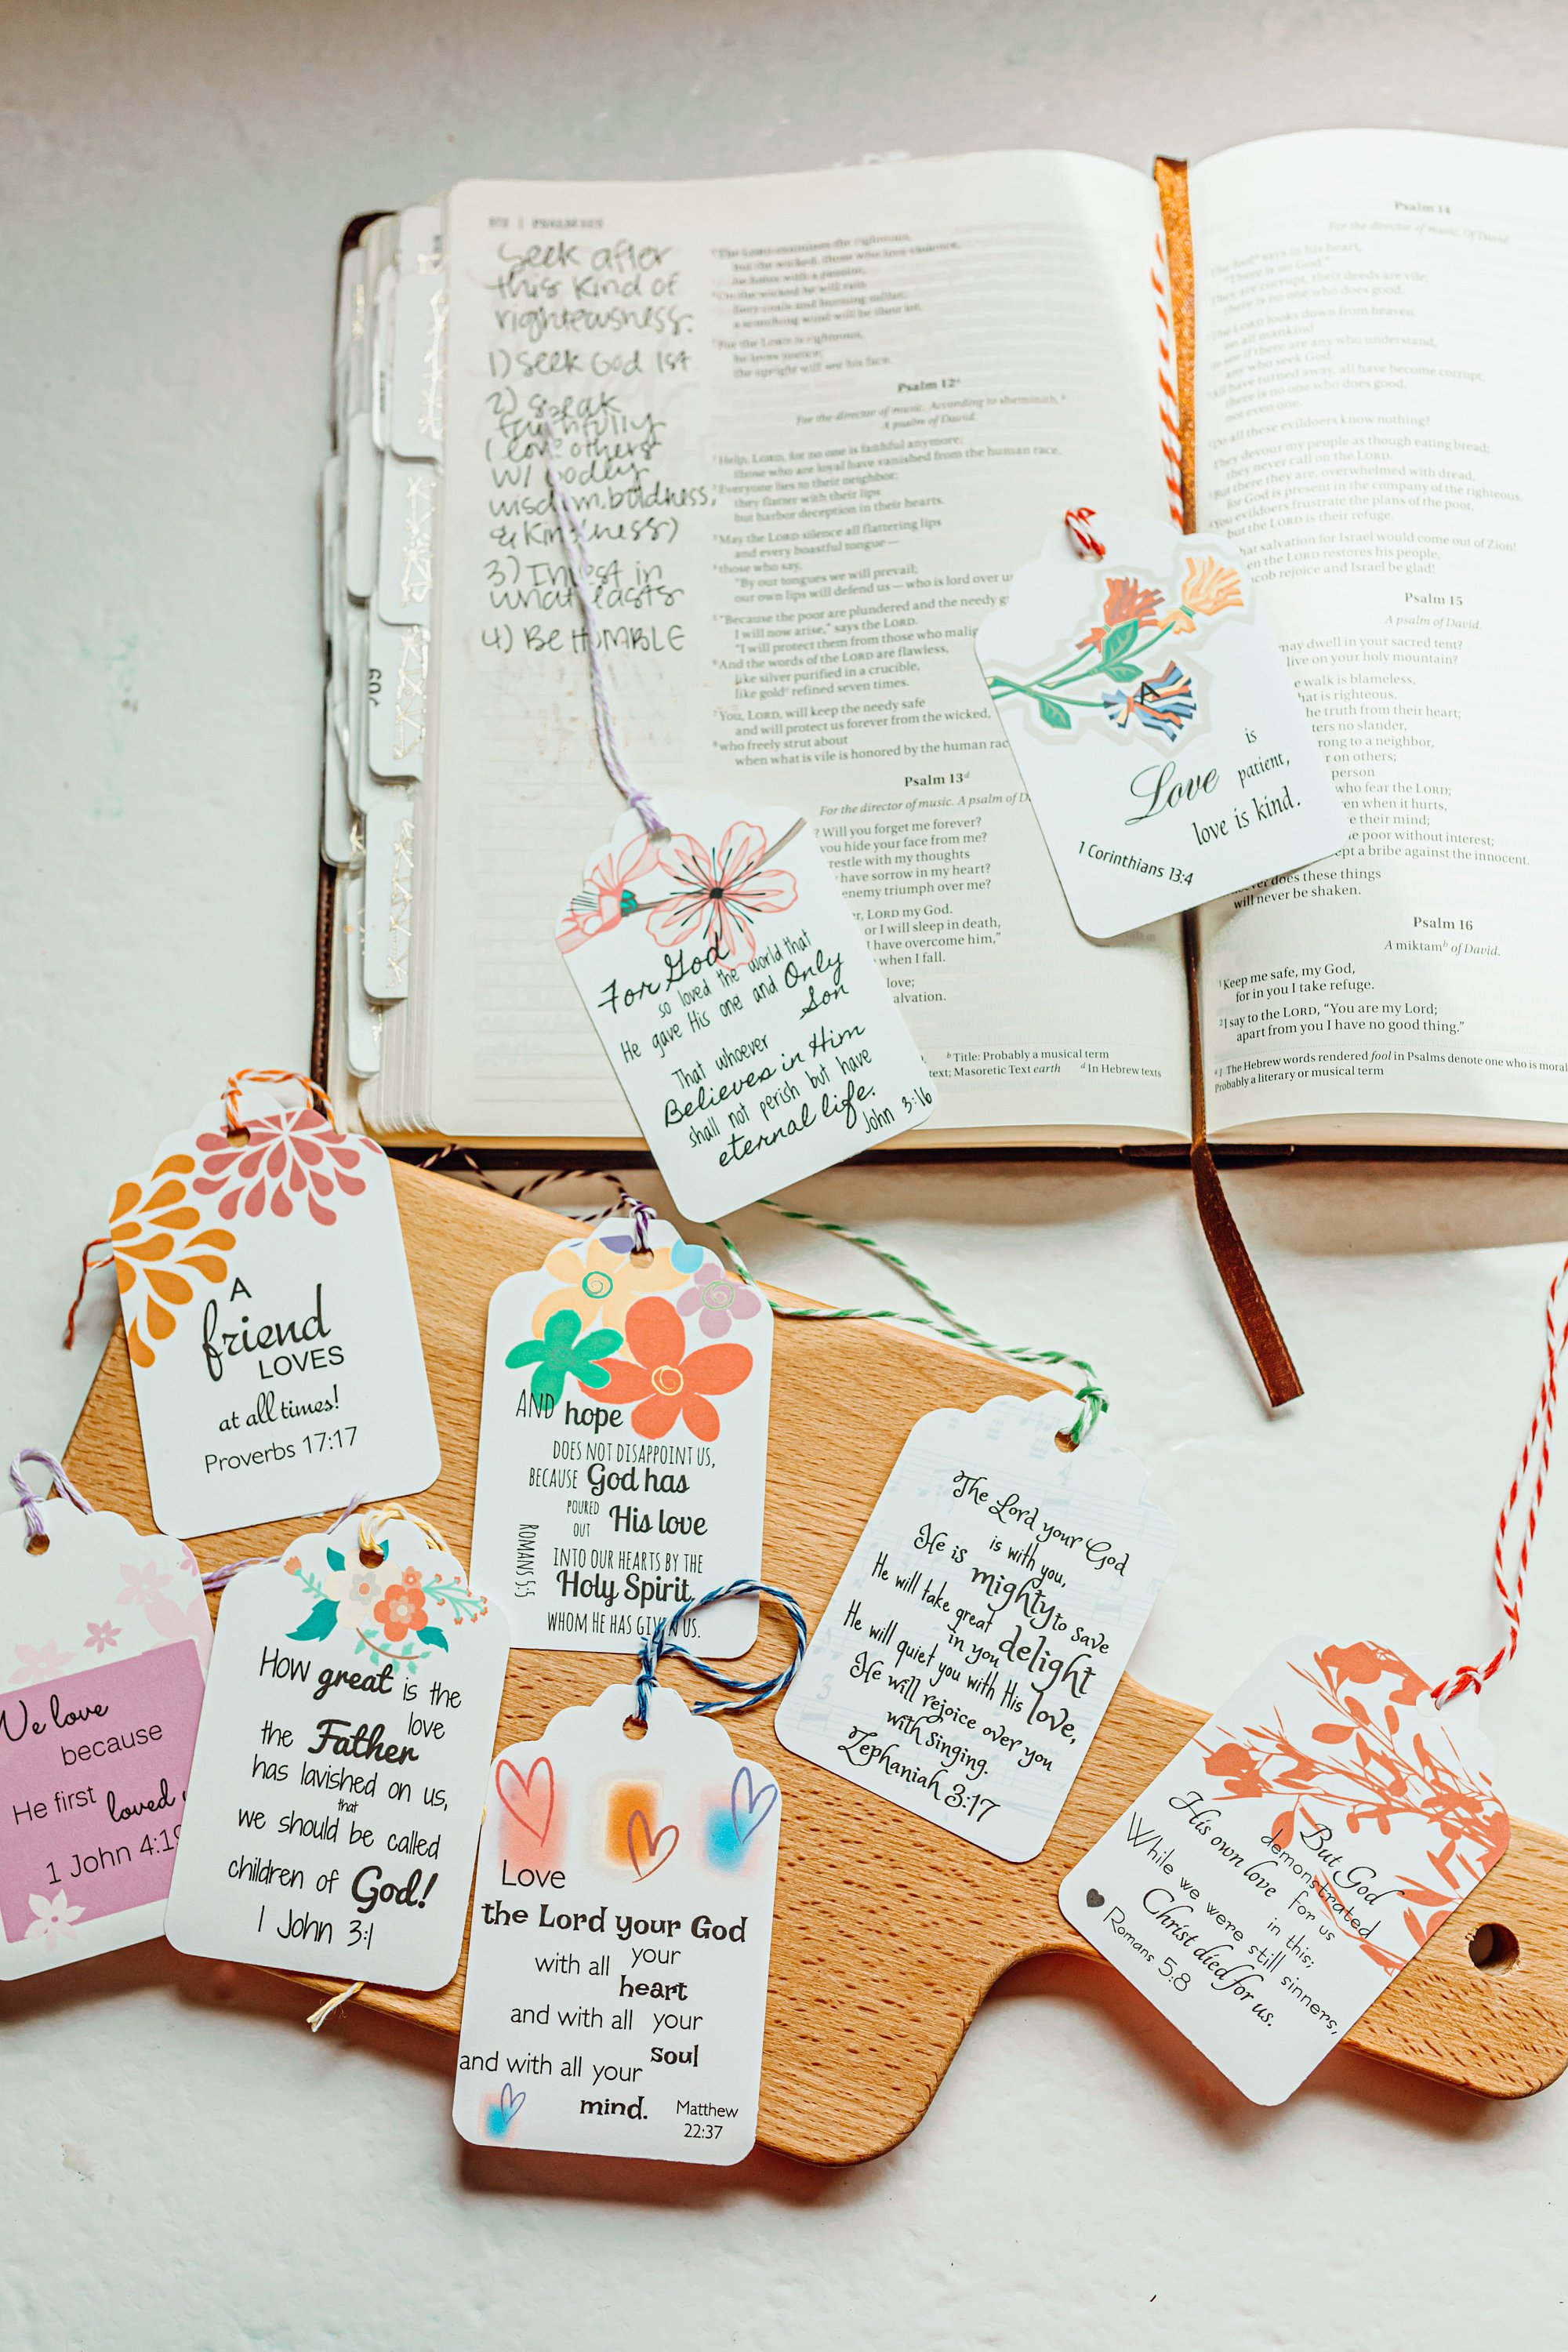 Seek after
this kind of
righteousness:
1) Seek God 1st
2) Speak
faithfully
(love others
w/ godly
wisdom, boldness,
& kindness)
3) Invest in
what lasts
4) Be HUMBLE
the upright will see his face.
Psalm 12
For the director of music. According to sheminith.
A psalm of David.
Help, LORD, for no one is faithful anymore;
those who are loyal have vanished from the human race.
Everyone lies to their neighbor;
they flatter with their lips
but harbor deception in their hearts.
May the LORD silence all flattering lips
and every boastful tongue—
those who say,
"By our tongues we will prevail;
our own lips will defend us — who is lord over
"Because the poor are plundered and the needy
I will now arise," says the LORD.
"I will protect them from those who
And the words of the LORD are flawless,
like silver purified in a crucible,
like gold refined seven times.
You, LORD, will keep the needy safe
and will protect us forever from the wicked,
who freely strut about
when what is vile is honored by the human
Psalm 13d
For the director of music. A psalm of
? Will you forget me forever?
you hide your face from me?
with my thoughts
have sorrow in my heart?
enemy triumph over me?
LORD my God.
or I will sleep in death,
have overcome him,"
when I fall.
love;
b Title: Probably a musical term
text; Masoretic Text earth d In Hebrew texts
Psalm 14
For the director of music. Of David.
The fool says in his heart,
"There is no God."
They are corrupt, their deeds are vile;
there is no one who does good.
The LORD looks down from heaven
on all mankind
to see if there are any who understand,
any who seek God.
All have turned away, all have become corrupt,
there is no one who does good,
not even one.
Do all these evildoers know nothing?
They devour my people as though eating bread;
they never call on the LORD.
But there they are, overwhelmed with dread,
for God is present in the company of the righteous.
You evildoers frustrate the plans of the poor,
but the LORD is their refuge.
that salvation for Israel would come out of Zion!
the LORD restores his people,
rejoice and Israel be glad!
Psalm 15
A psalm of David.
may dwell in your sacred tent?
live on your holy mountain?
walk is blameless,
is righteous,
the truth from their heart;
no slander,
to a neighbor,
on others;
person
who fear the LORD;
when it hurts,
their mind;
poor without interest;
a bribe against the innocent.
does these things
will never be shaken.
Psalm 16
A miktamb of David.
1 Keep me safe, my God,
for in you I take refuge.
2 I say to the LORD, "You are my Lord;
apart from you I have no good thing."
a 1 The Hebrew words rendered fool in Psalms denote one who is
Probably a literary or musical term
is
Love patient,
love is kind.
1 Corinthians 13:4
For God
so loved the world that
He gave His one and Only
Son
That whoever
Believes in Him
shall not perish but have
eternal life.
John 3:16
A
friend
LOVES
at all times!
Proverbs 17:17
AND hope
DOES NOT DISAPPOINT US,
BECAUSE God has
POURED
OUT His love
INTO OUR HEARTS BY THE
Holy Spirit,
WHOM HE HAS GIVEN US.
ROMANS 5:5
The Lord your God
is with you,
He is mighty to save
He will take great
in you delight
He will quiet you with His love,
He will rejoice over you
with singing.
Zephaniah 3:17
We love
because
He first loved
1 John 4:19
How great is the
love
the Father
has lavished on us,
that
we should be called
children of God!
1 John 3:1
Love
the Lord your God
with all your
heart
and with all your
soul
and with all your
mind.
Matthew
22:37
But God
demonstrated
His own love for us
in this;
While we were still sinners,
Christ died for us.
Romans 5:8